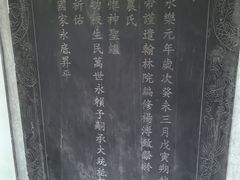 永樂元年歲次癸未三月戊寅朔
帝謹遣翰林院編修楊溥敢
農氏
惟神聖繼
生民萬世永賴予嗣承大統祗
祈佑
國家永底昇平